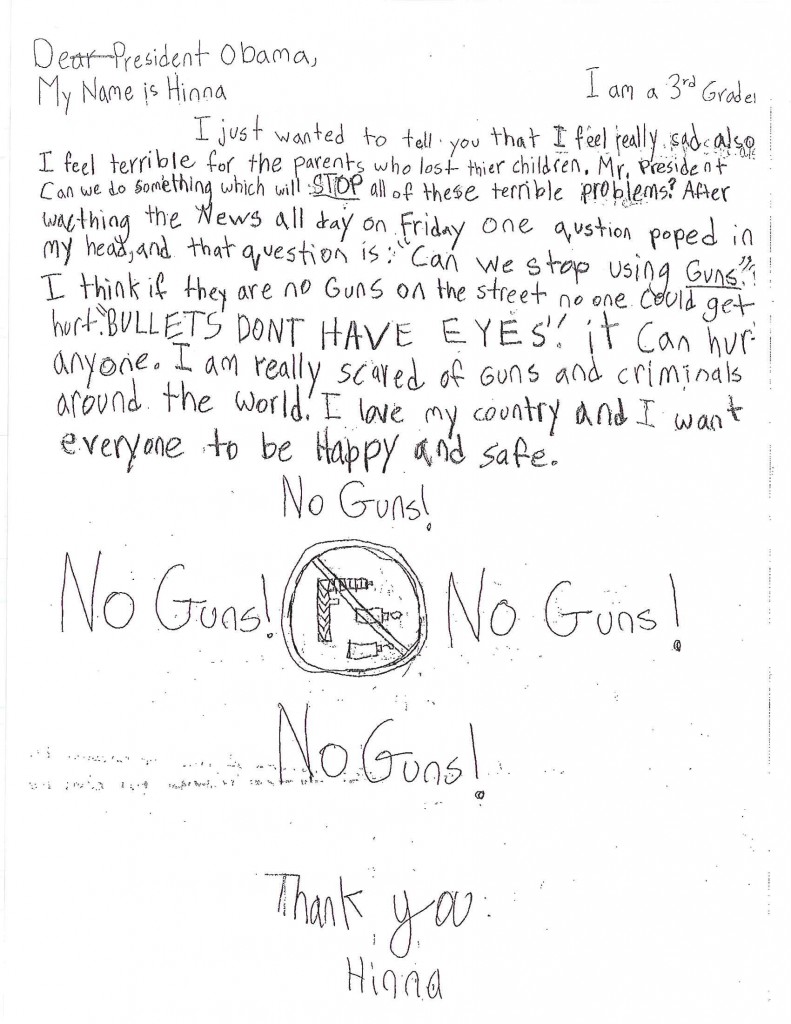 Dear President Obama,
My Name is Hinna I am a 3rd Grader
I just wanted to tell you that I feel really sad also
I feel terrible for the parents who lost thier children. Mr. President
Can we do something which will STOP all of these terrible problems? After
wacthing the News all day on Friday one qustion poped in
my head, and that question is: "Can we stop using Guns"?
I think if they are no Guns on the street no one could get
hurt. "BULLETS DONT HAVE EYES"! it can hur
anyone. I am really scared of Guns and criminals
around the world! I love my country and I want
everyone to be Happy and safe.
No Guns!
No Guns! No Guns!
No Guns!
Thank you
Hinna